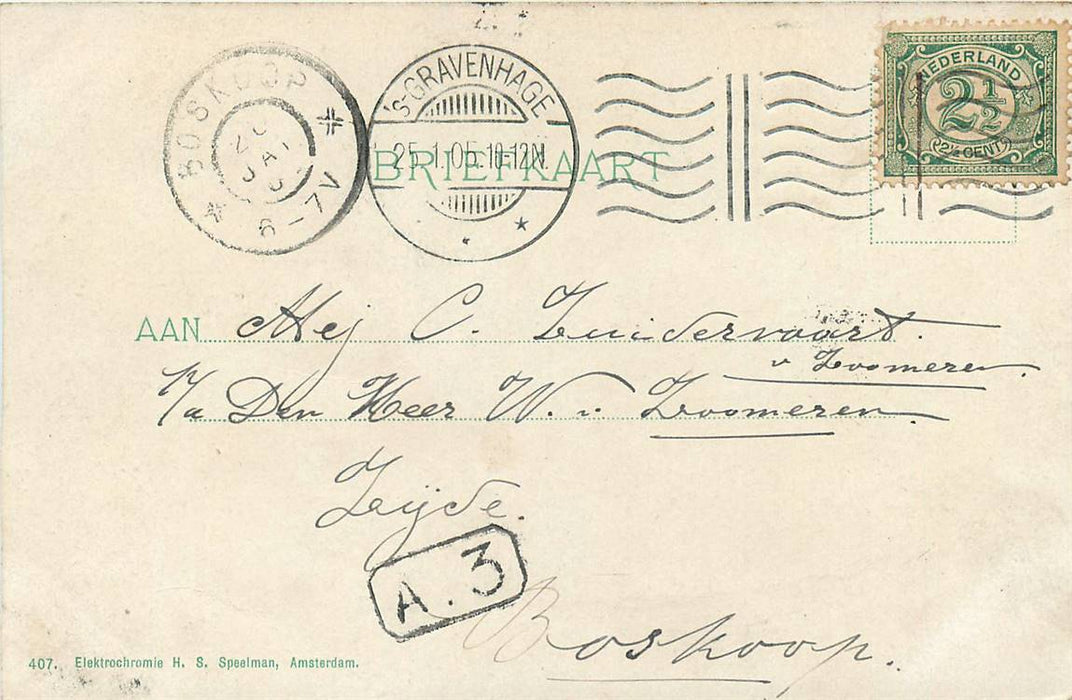 BOSKOOP
6-7V
'S-GRAVENHAGE
25.1.05.10-12N
NEDERLAND
2½
2½ CENT
BRIEFKAART
AAN Mej C. Zuidervaart.
v Zoomeren.
P/a Den Heer W. v. Zoomeren
Zijde.
A.3
Boskoop.
407. Elektrochromie H. S. Speelman, Amsterdam.